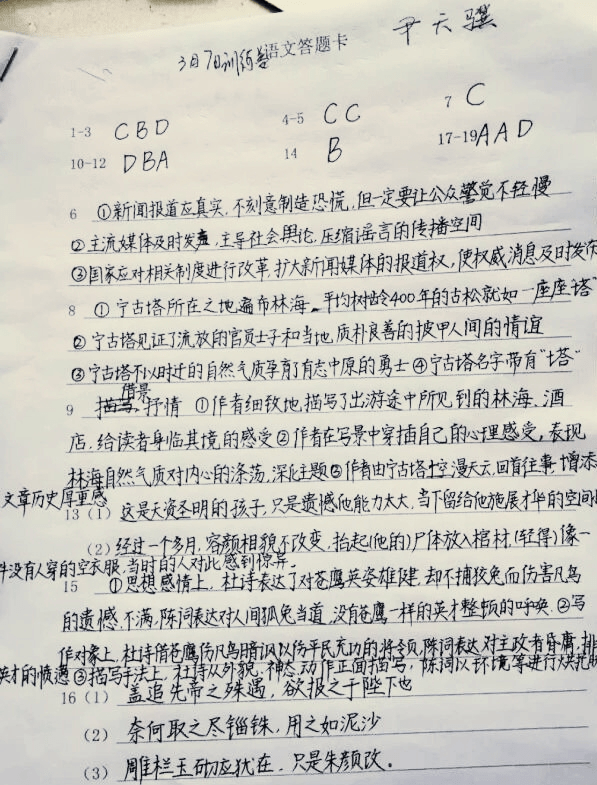 尹天骥
3月7日训练卷语文答题卡
1-3 CBD 4-5 CC 7 C
10-12 DBA 14 B 17-19 AAD
6 ①新闻报道应真实,不刻意制造恐慌,但一定要让公众警觉不轻慢
②主流媒体及时发声,主导社会舆论,压缩谣言的传播空间
③国家应对相关制度进行改革,扩大新闻媒体的报道权,使权威消息及时发
8 ①宁古塔所在之地遍布林海,平均树龄400年的古松就如一座座"塔"
②宁古塔见证了流放的官员士子和当地质朴良善的披甲人间的情谊
③宁古塔不以时迁的自然气质孕育了有志中原的勇士④宁古塔名字带有"塔"
借景
9 抒情 ①作者细致地描写了出游途中所见到的林海、酒
店,给读者身临其境的感受②作者在写景中穿插自己的心理感受,表现
林海自然气质对内心的涤荡,深化主题③作者由宁古塔 漫天云,回首往事,增添
文章历史厚重感
13(1)这是天资圣明的孩子,只是遗憾他能力太大,当下留给他施展才华的空间
(2)经过一个多月,容颜相貌不改变,抬起(他的)尸体放入棺材,(轻得)像一
件没有人穿的空衣服,当时的人对此感到惊异。
15 ①思想感情上,杜诗表达了对苍鹰英姿雄健,却不捕狡兔而伤害凡鸟
的遗憾、不满,陈词表达对人间狐兔当道,没有苍鹰一样的英才整顿的呼唤.②写
作对象上,杜诗借苍鹰伤凡鸟暗讽以伤平民充功的将领,陈词表达对主政者昏庸,排
英才的愤懑③描写手法上,杜诗从外貌、神态、动作正面描写,陈词以环境等进行烘托
16(1)盖追先帝之殊遇,欲报之于陛下也
(2)奈何取之尽锱铢,用之如泥沙
(3)雕栏玉砌应犹在,只是朱颜改.